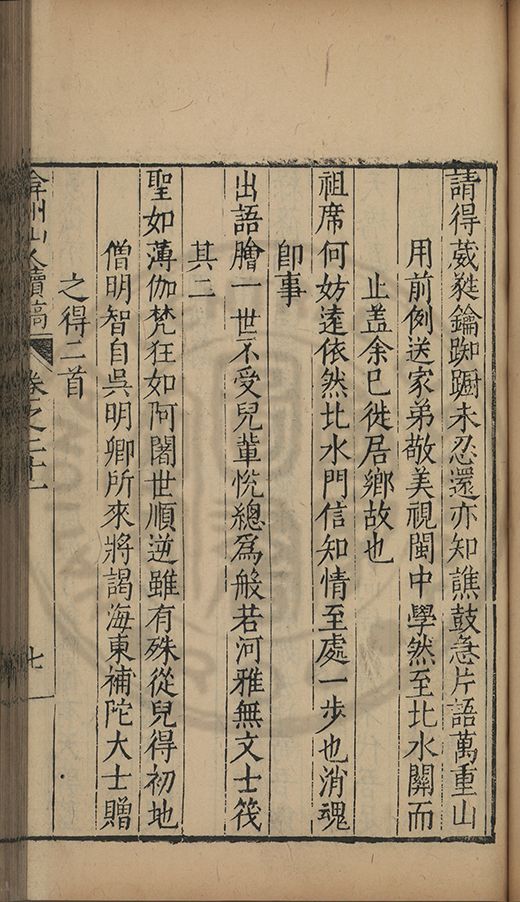 請得葳蕤鑰踟躕未忍還亦知譙鼓急片語萬重山
用前例送家弟敬美視閩中學然至北水關而
止蓋余已徙居鄉故也
祖席何妨遠依然北水門信知情至處一步也消魂
卽事
出語膾一世不受兒輩悅總爲般若河雅無文士筏
其二
聖如薄伽梵狂如阿闍世順逆雖有殊從兒得初地
僧明智自吳明卿所來將謁海東補陀大士贈
之得二首
弇州山人續稿 卷之二十一 七